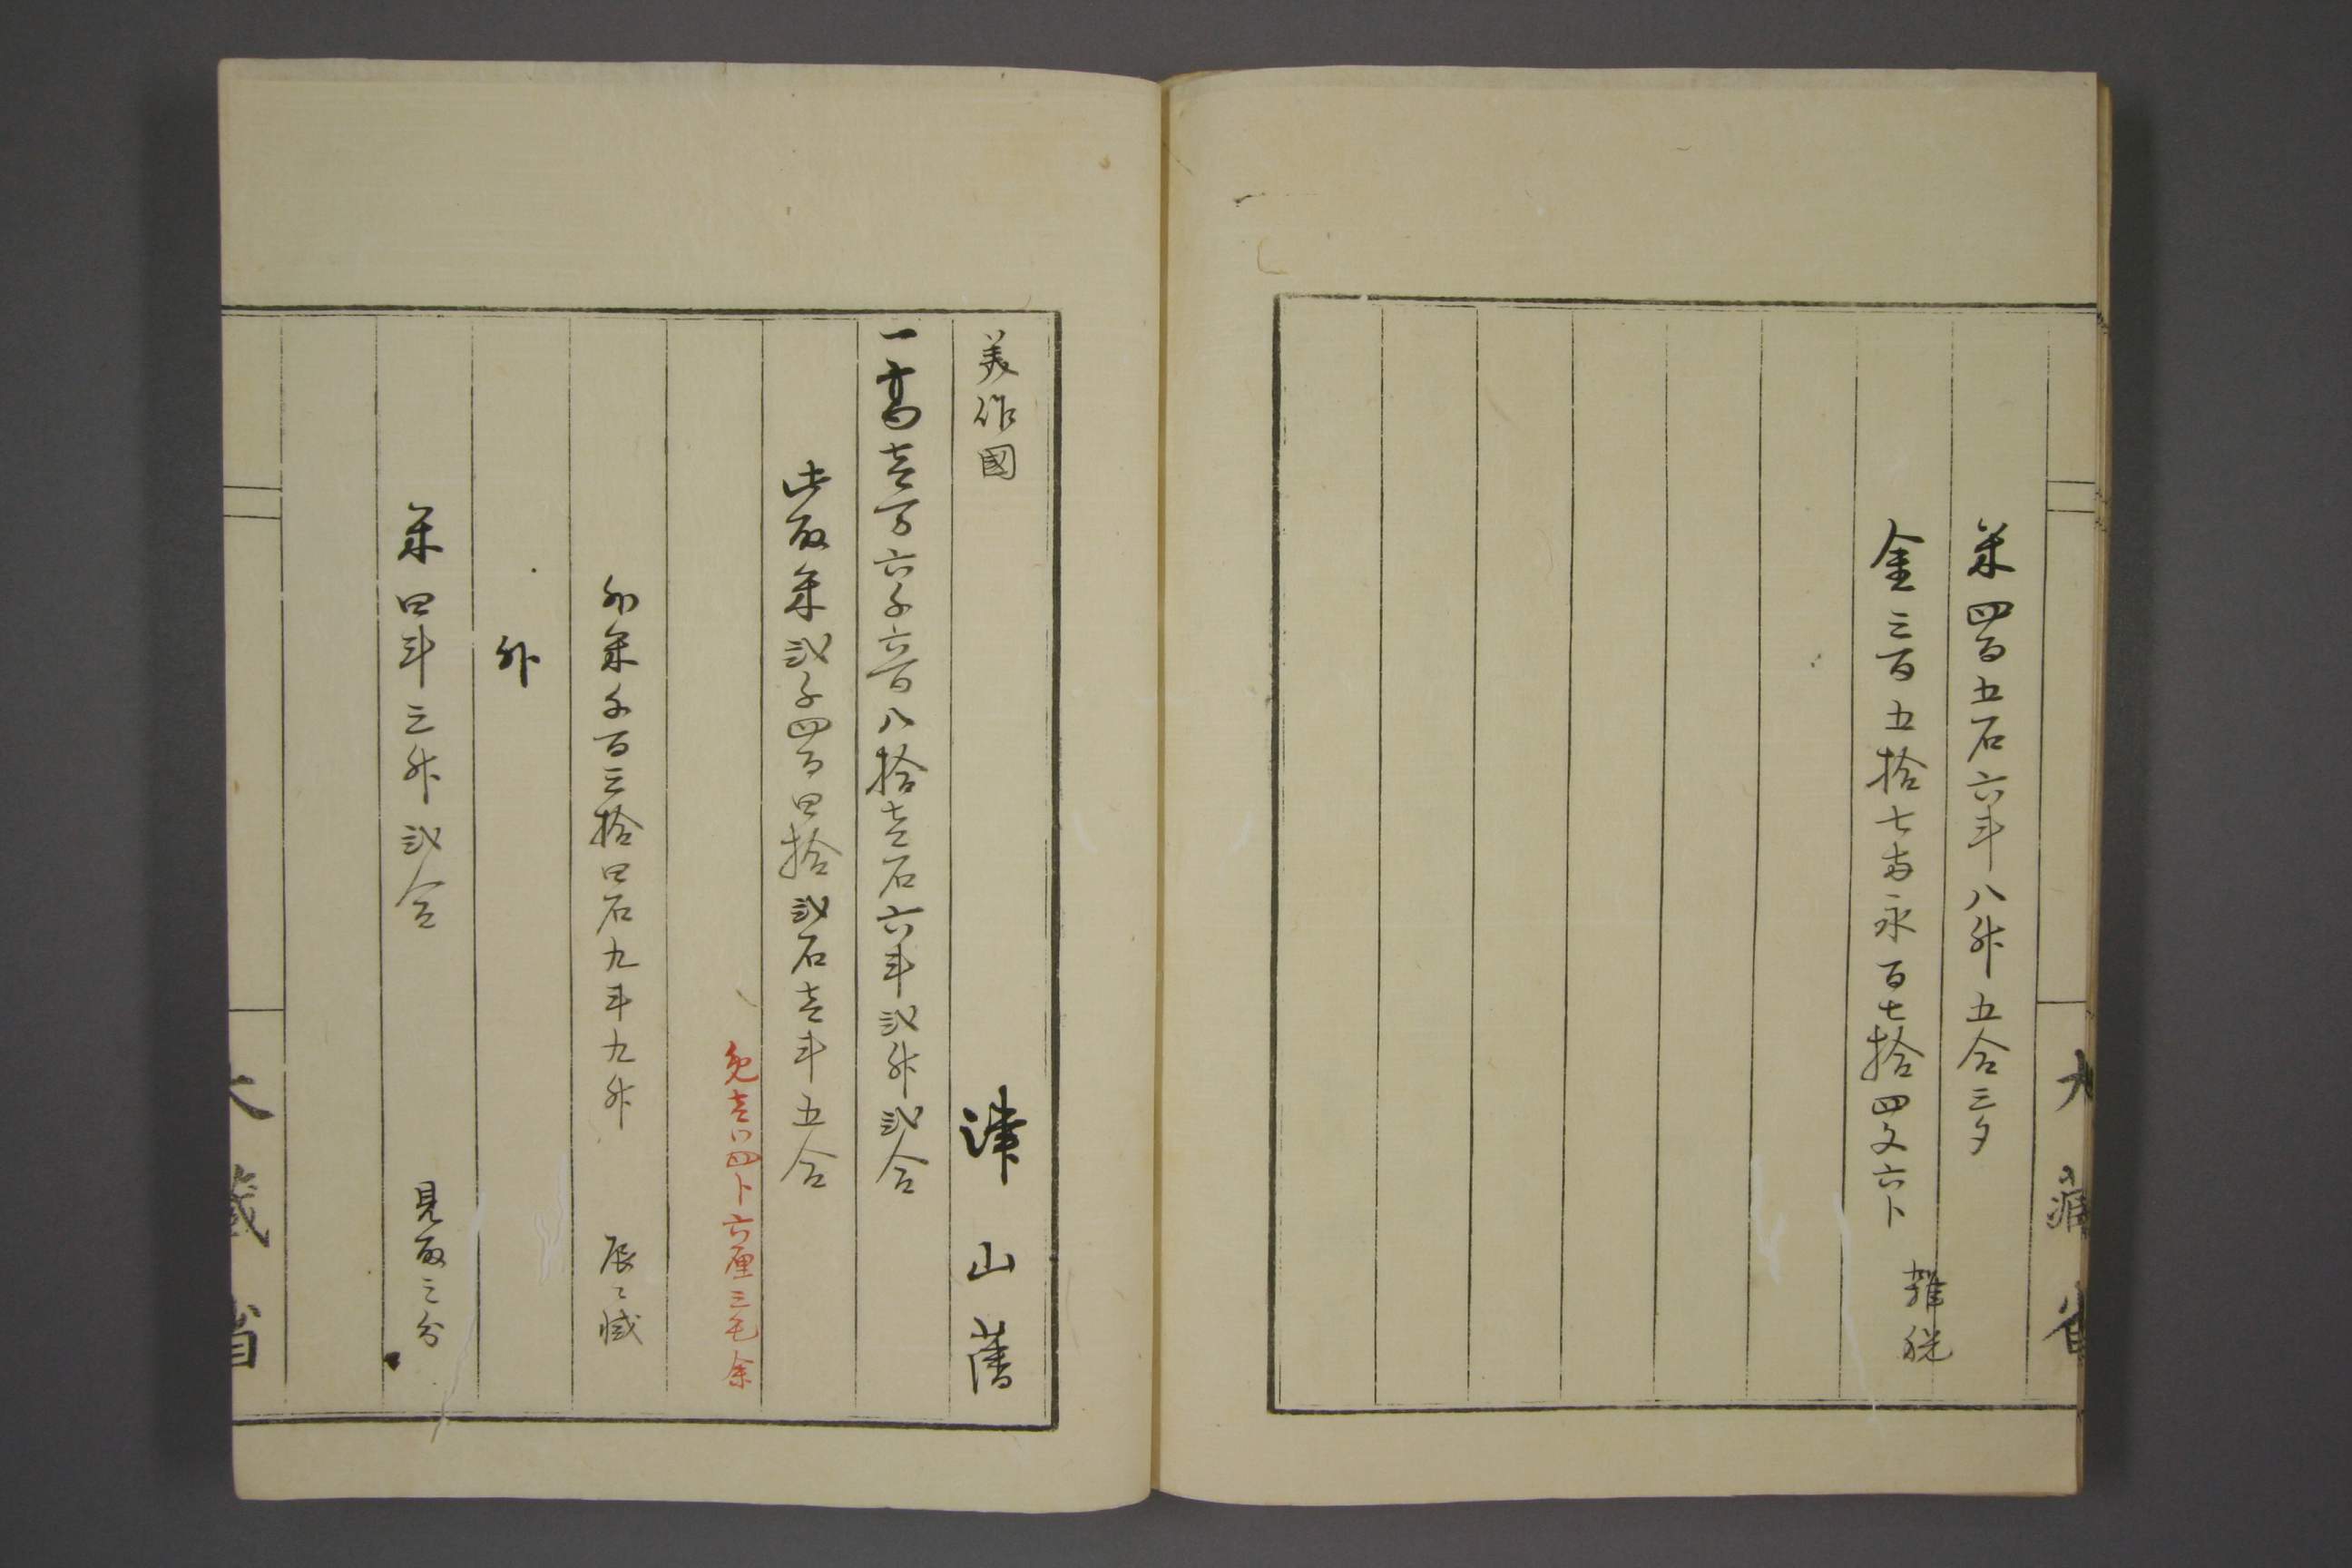 大藏省
米四百五石六斗八升五合三夕
金三百五拾七両永百七拾四文六卜
雑税
美作國
津山藩
一高壱万六千六百八拾壱石六斗弐升弐合
此取米弐千四百四拾弐石壱斗五合
免壱ツ四卜六厘三毛余
外米千百三拾四石九斗九升
辰ニ減
外
米四斗三升弐合
見取之分
大藏省